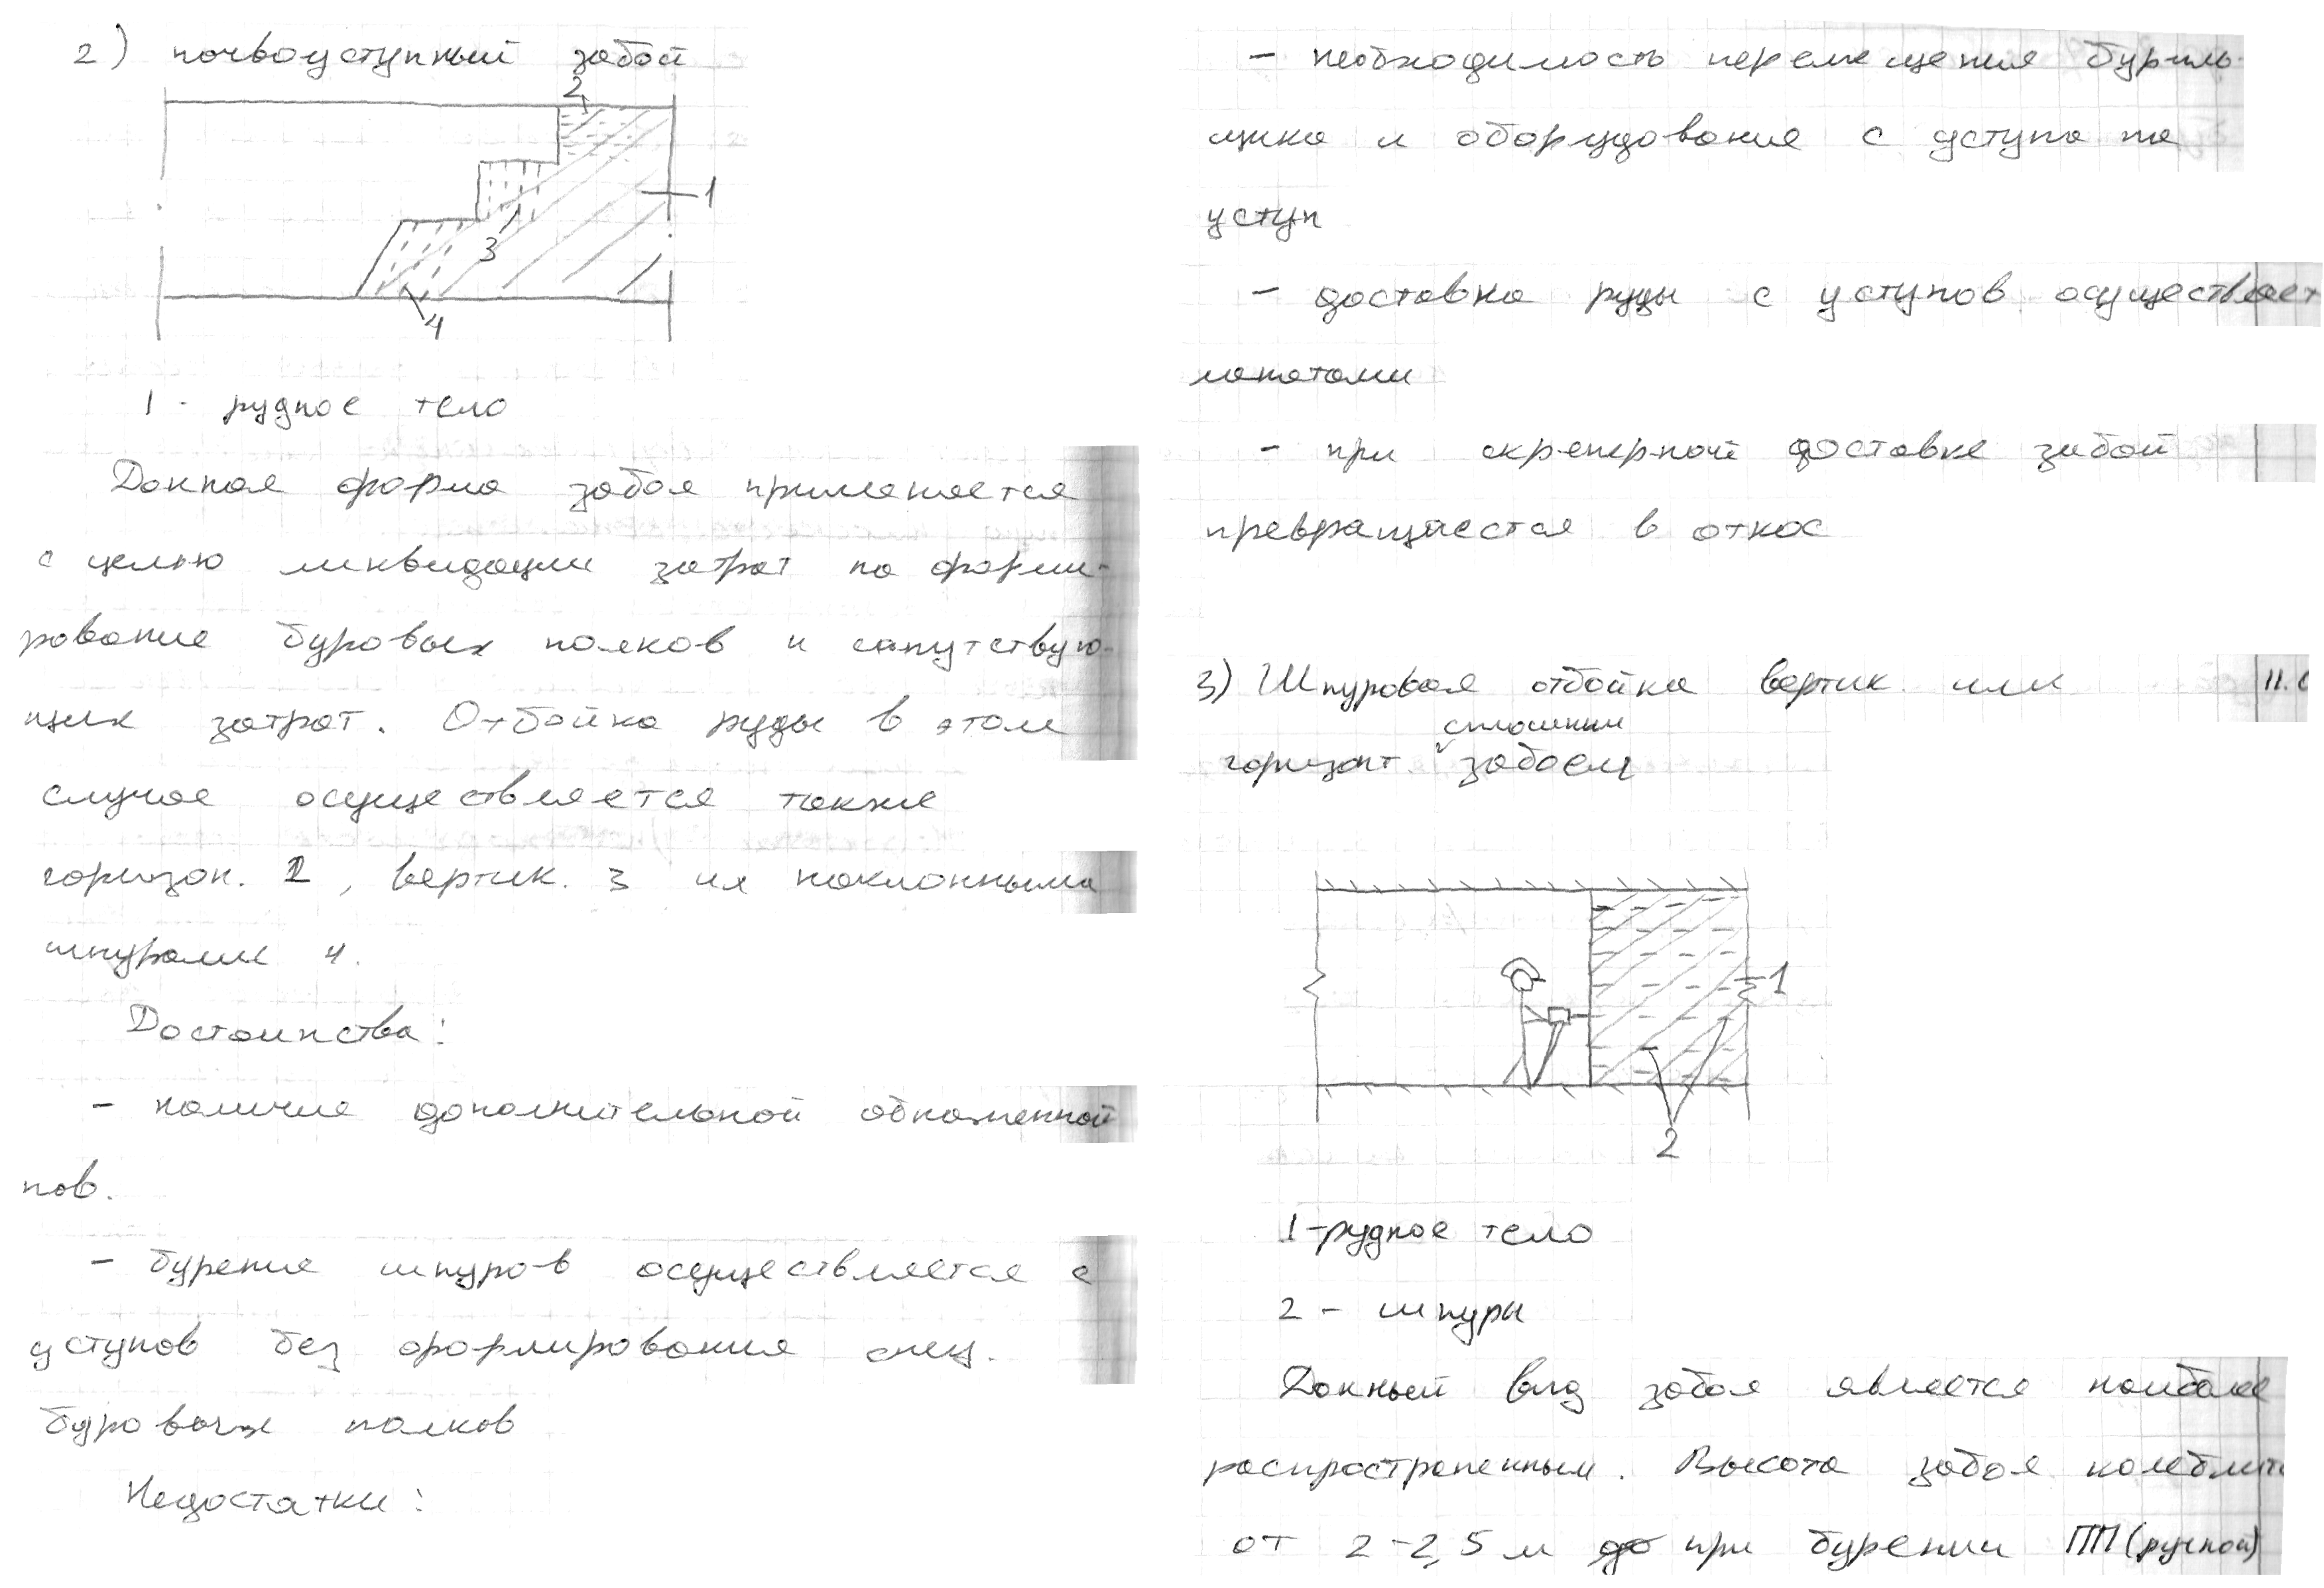 2) почвоуступный забой
2
1
3
4
1 - рудное тело
Данная форма забоя применяется
с целью ликвидации затрат на форми-
рование буровых полков и сапутствую-
щих затрат. Отбойка руды в этом
случае осуществляется также
горизон. 2, вертик. 3 ил наклонными
шпурами 4.
Достоинства:
- наличие дополнительной обнаженной
пов.
- бурение шпуров осуществляется с
уступов без формирования спец.
буровых полков
Недостатки:
- необходимость перемещения буриль-
щика и оборудования с уступа на
уступ
- доставка руды с уступов осуществляет
лопатами
- при скреперной доставке забой
превращается в откос
3) Шпуровая отбойка вертик. или
сплошным
горизонт. забоем
1
2
1 - рудное тело
2 - шпуры
Данный вид забоя является наиболее
распространенным. Высота забоя колеблит
от 2-2,5 м до при бурении ПП (ручной)